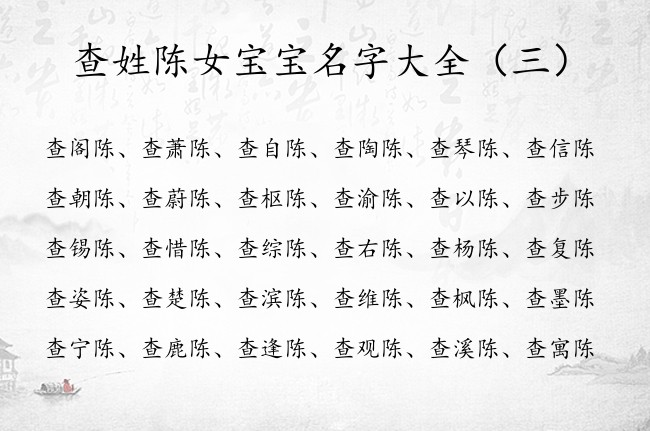 查姓陈女宝宝名字大全（三）
查阁陈、查萧陈、查自陈、查陶陈、查琴陈、查信陈
查朝陈、查蔚陈、查枢陈、查渝陈、查以陈、查步陈
查锡陈、查惜陈、查综陈、查右陈、查杨陈、查复陈
查姿陈、查楚陈、查滨陈、查维陈、查枫陈、查墨陈
查宁陈、查鹿陈、查逢陈、查观陈、查溪陈、查寓陈